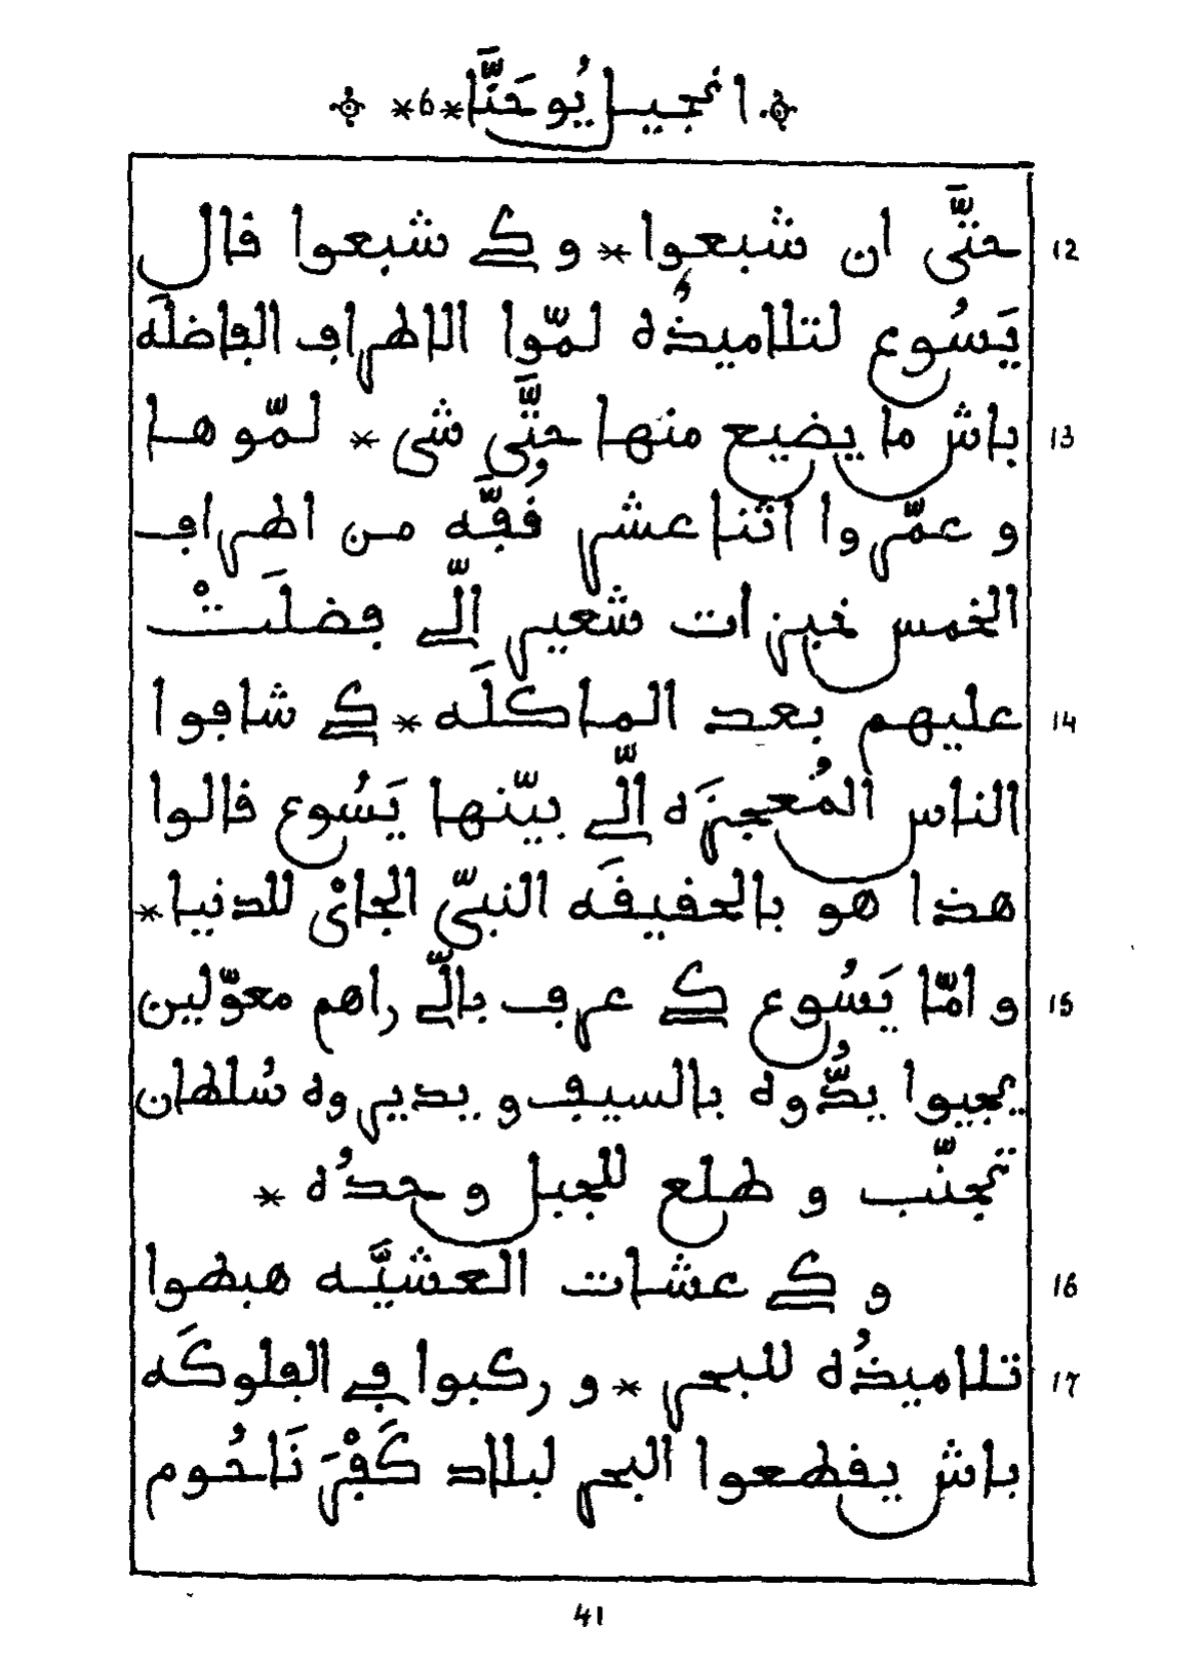 انجيل يُوحَنَّا *6*
12 حتَّى ان شبعوا * و كے شبعوا قال
يَسُوع لتلاميذُه لمّوا الاطراف الفاضلَه
13 باش ما يضيع منها حتَّى شى * لمّوها
و عمّروا اثناعشر قُفَّه من اطراف
الخمس خبزات شعير الّے فضلَتْ
14 عليهم بعد الماكلَه * كے شافوا
الناس المُعجزَه الّے بيّنها يَسُوع قالوا
هذا هو بالحقيقَه النبىّ الجاىْ للدنيا *
15 و امّا يَسُوع كے عرف بالّے راهم معوّلين
يجيوا يدُّوه بالسيف و يديروه سُلطان
تجنّب و طلع للجبل وحدُه *
16 و كے عشات العشيَّه هبطوا
17 تلاميذُه للبحر * و ركبوا فے الفلوكَه
باش يقطعوا البحر لبلاد كَفْرَ نَاحُوم
41